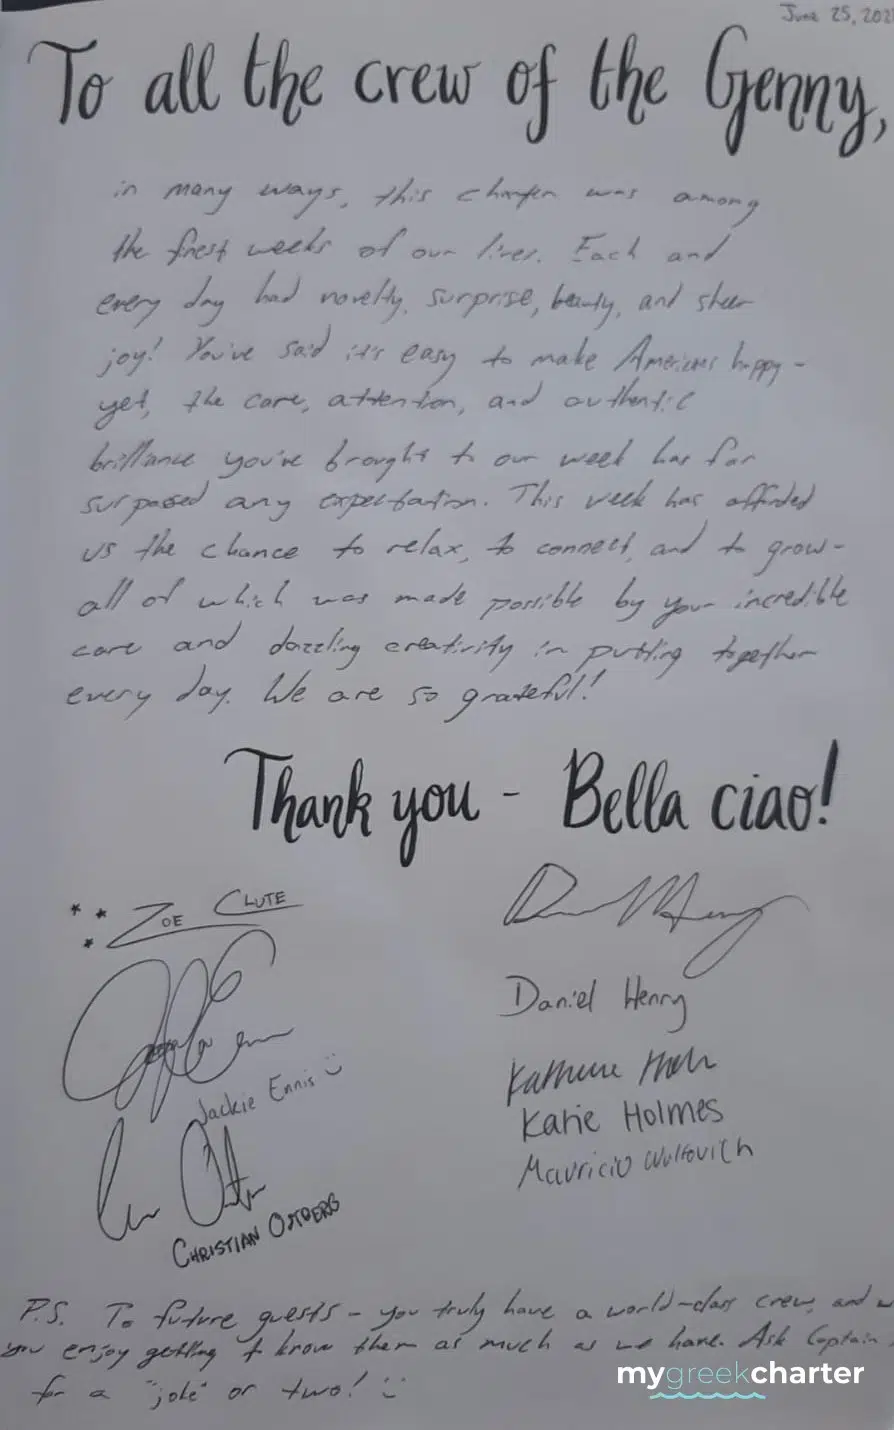 June 25, 202
To all the crew of the Genny,
in many ways, this charter was among
the finest weeks of our lives. Each and
every day had novelty, surprise, beauty, and sheer
joy! You've said it's easy to make Americans happy -
yet, the care, attention, and authentic
brilliance you've brought to our week has far
surpassed any expectation. This week has afforded
us the chance to relax, to connect, and to grow -
all of which was made possible by your incredible
care and dazzling creativity in putting together
every day. We are so grateful!
Thank you - Bella ciao!
Zoe Clute
Daniel Henry
Jackie Ennis
Katie Holmes
Mauricio Wulfovich
Christian Ostberg
P.S. To future guests - you truly have a world-class crew, and
you enjoy getting to know them as much as we have. Ask Captain
for a "joke" or two!
mygreekcharter